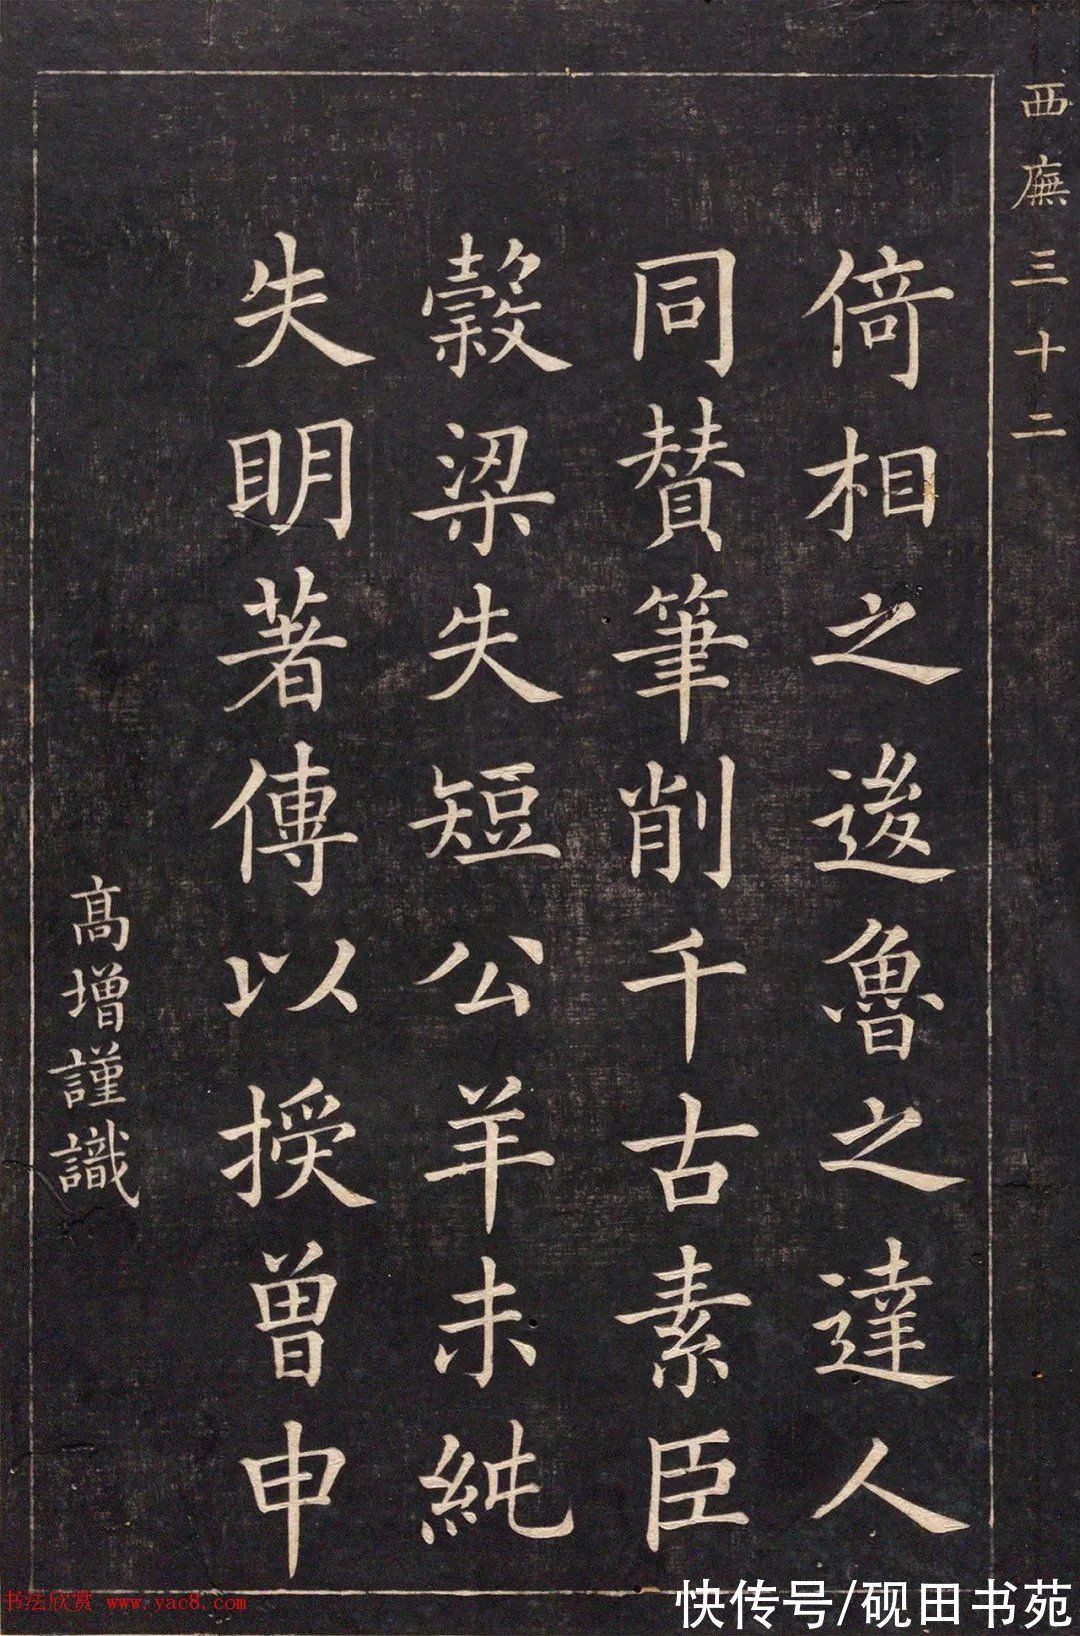 西廡三十二
倚相之後魯之達人
同贊筆削千古素臣
穀梁失短公羊未純
失明著傳以授曾申
高增謹識
书法欣赏 www.yac8.com
快传号/砚田书苑